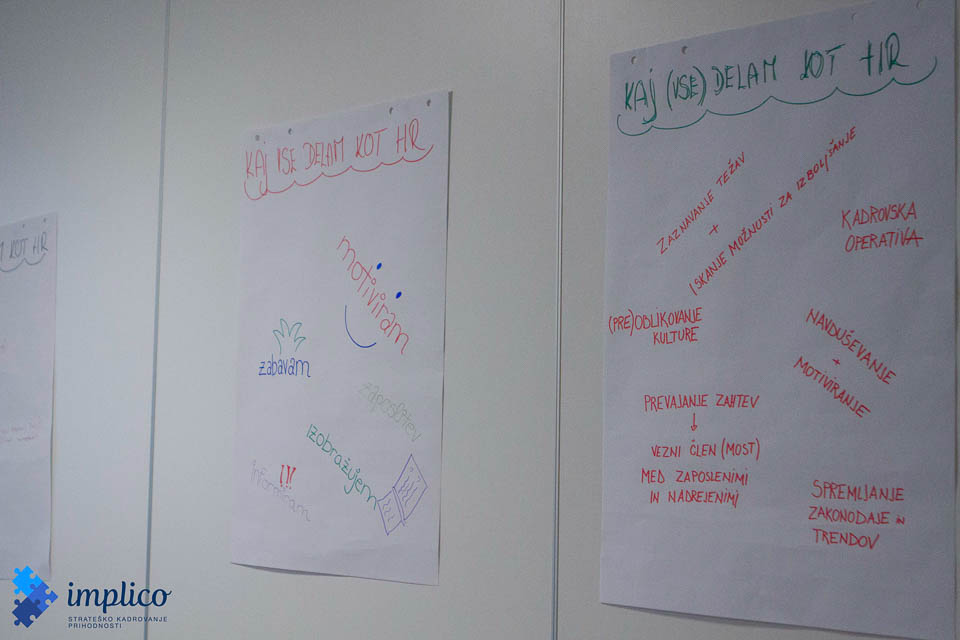 M KOT HR
KAJ VSE DELAM KOT HR
motiviram
zabavam
zaposlitev
izobražujem
!!!
informiram
KAJ (VSE) DELAM KOT HR
ZAZNAVANJE TEŽAV
+
ISKANJE MOŽNOSTI ZA IZBOLJŠANJE
KADROVSKA
OPERATIVA
(PRE)OBLIKOVANJE
KULTURE
NAVDUŠEVANJE
+
MOTIVIRANJE
PREVAJANJE ZAHTEV
↓
VEZNI ČLEN (MOST)
MED ZAPOSLENIMI
IN NADREJENIMI
SPREMLJANJE
ZAKONODAJE in
TRENDOV
implico
STRATEŠKO KADROVANJE
PRIHODNOSTI